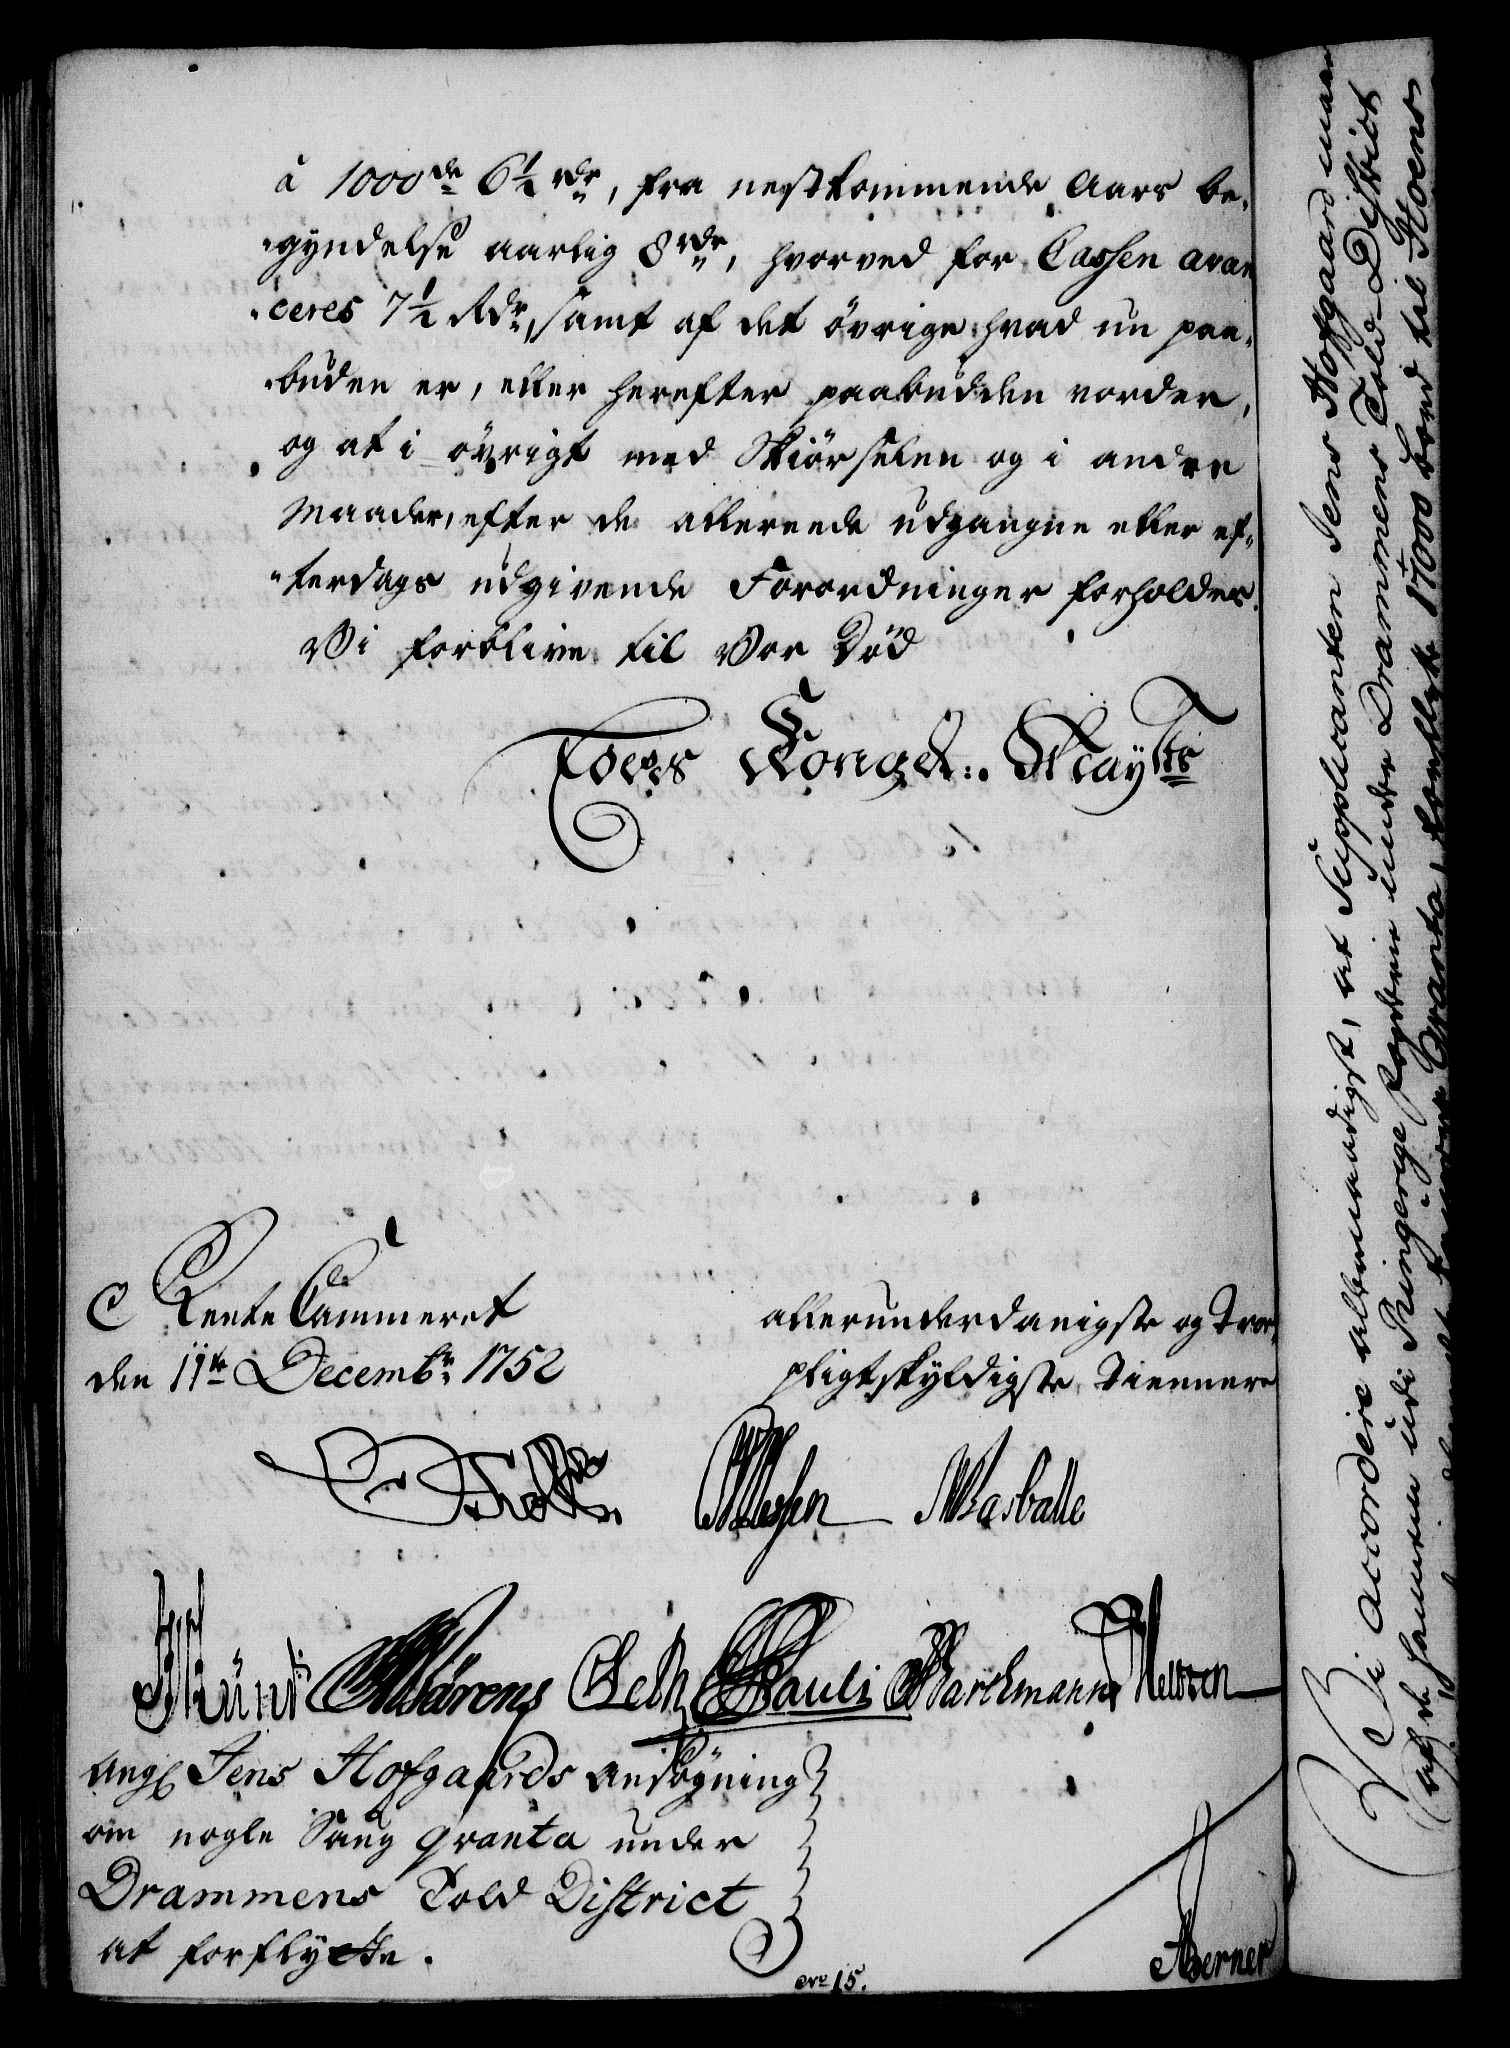 à 1000de 6½ rdr, fra nestkommende Aars be-
gyndelse aarlig 8 rdr, hvorved for Cassen avan
ceres 7½ Rdr, samt af det övrige hvad nu paa-
buden er, eller herefter paabudden vorder,
og at i övrigt med Skiörselen og i andre
Maader, efter de allereede udgangne eller ef-
terdags udgivende Forordninger forholdes.
Vi forblive til Vor Död
Eders Kongel: Mayts
C Rente Cammeret
den 11te Decembr 1752
allerunderdanigste og Troe
pligtskyldigste Tiennere
Wessen Masballe
Münt Wärens Seth Pauli Barchmann Neltzen
Angl Jens Hofgaards Ansøgning
om nogle Saug qvanta under
Drammens Told District
at forflytte.
Berner
No 15.
Vi accordere allernaadigst, at Supplicanten Jens Hoffgaard maae
af de hannem udi Ringerige Fogderie under Drammens Told-District
qvanta, forflytte 17000 bord til Hoens